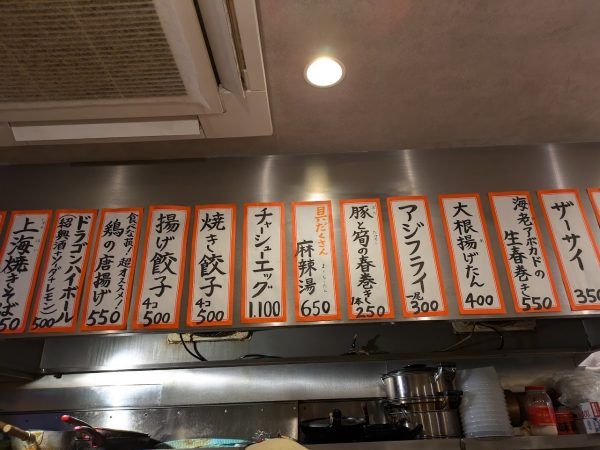 ザーサイ
350
海老アボカドの
生春巻き 550
大根揚げたん
400
アジフライ
一尾 300
豚と筍の春巻き
1本 250
具だくさん
麻辣湯
650
チャーシューエッグ
1.100
焼き餃子
4コ
500
揚げ餃子
4コ
500
食べな損!超オススメ!
鶏の唐揚げ
550
ドラゴンハイボール
(紹興酒+ソーダ+レモン)
500
上海焼きそば
50